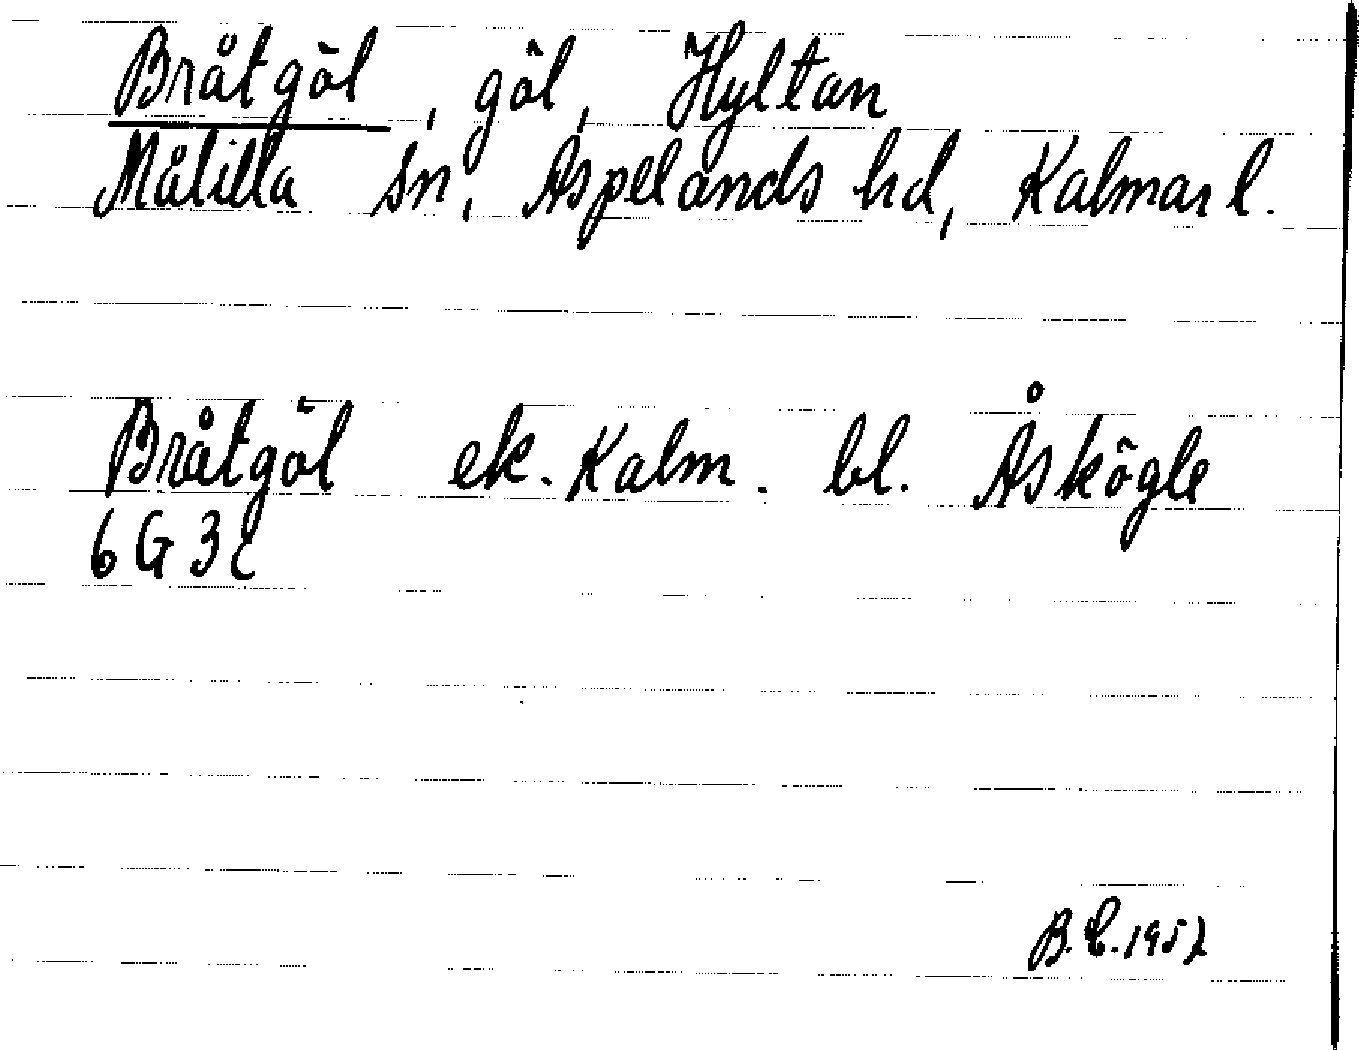 Bråtgöl, göl, Hyltan
Målilla sn, Aspelands hd, Kalmar l.
Bråtgöl ek. Kalm. bl. Åskögle
6G3c
B.E.1957